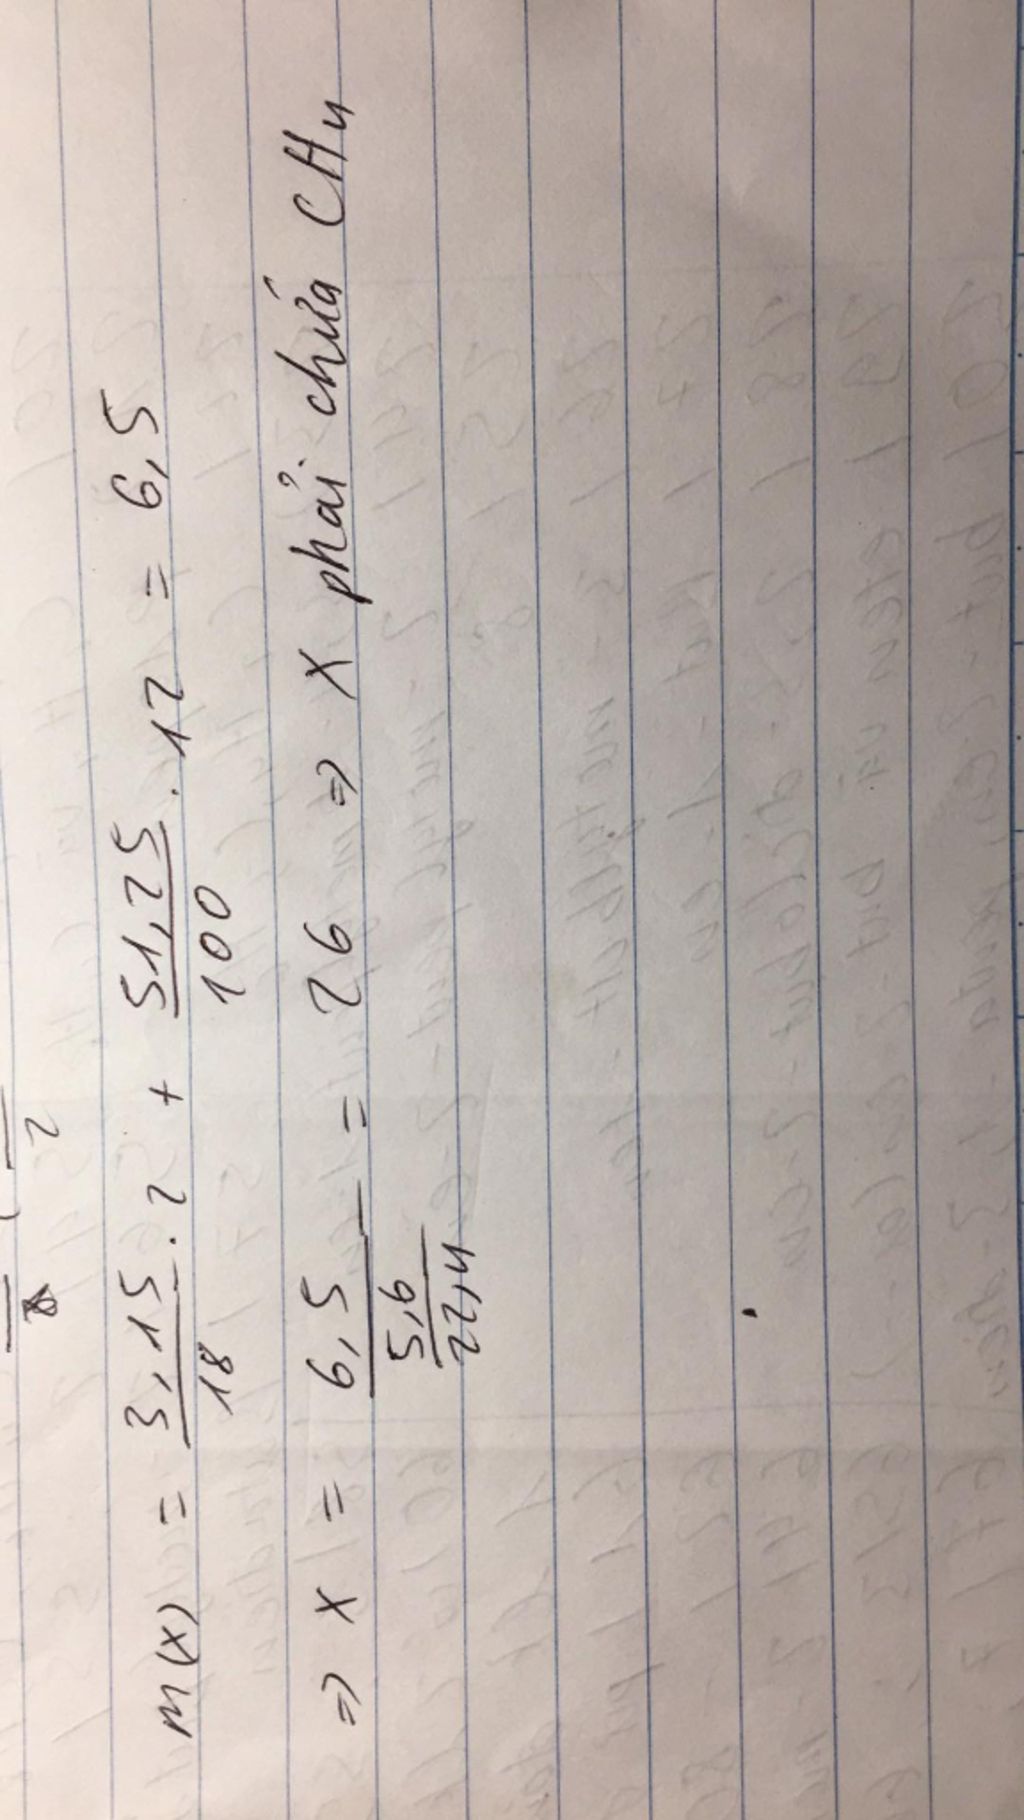 m(x) = 3,15/18 . 2 + 51,25/100 . 12 = 6,5
=> x = 6,5/(5,6/22,4) = 26 => x phải chứa CH4